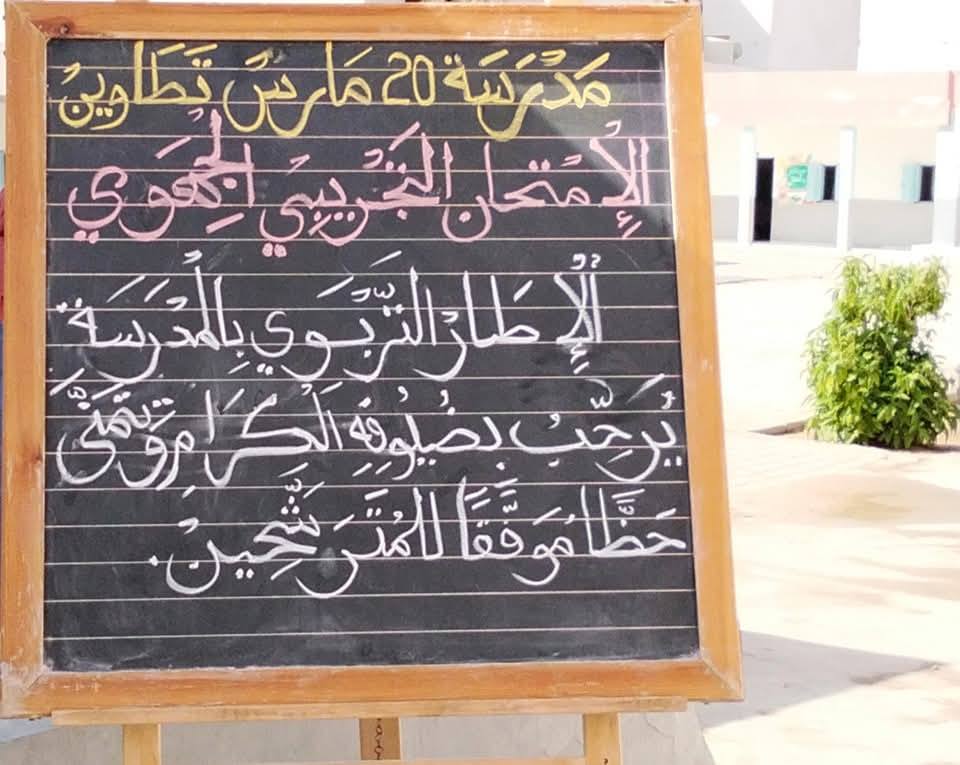 مَدْرَسَة 20 مَارسْ تَطَاوِينْ
الإِمْتحَان التَّجْرِيبِي الجِهَوي
الْإِطَارُ التَّرْبَوي بِالْمَدْرَسَة
يُرَحِّبُ بضُيُوفِهِ الْكِرَامِ وَيَتَمَنَّى
حَظًّا مُوَفَّقًا للمُتَرَشِّحِينْ.